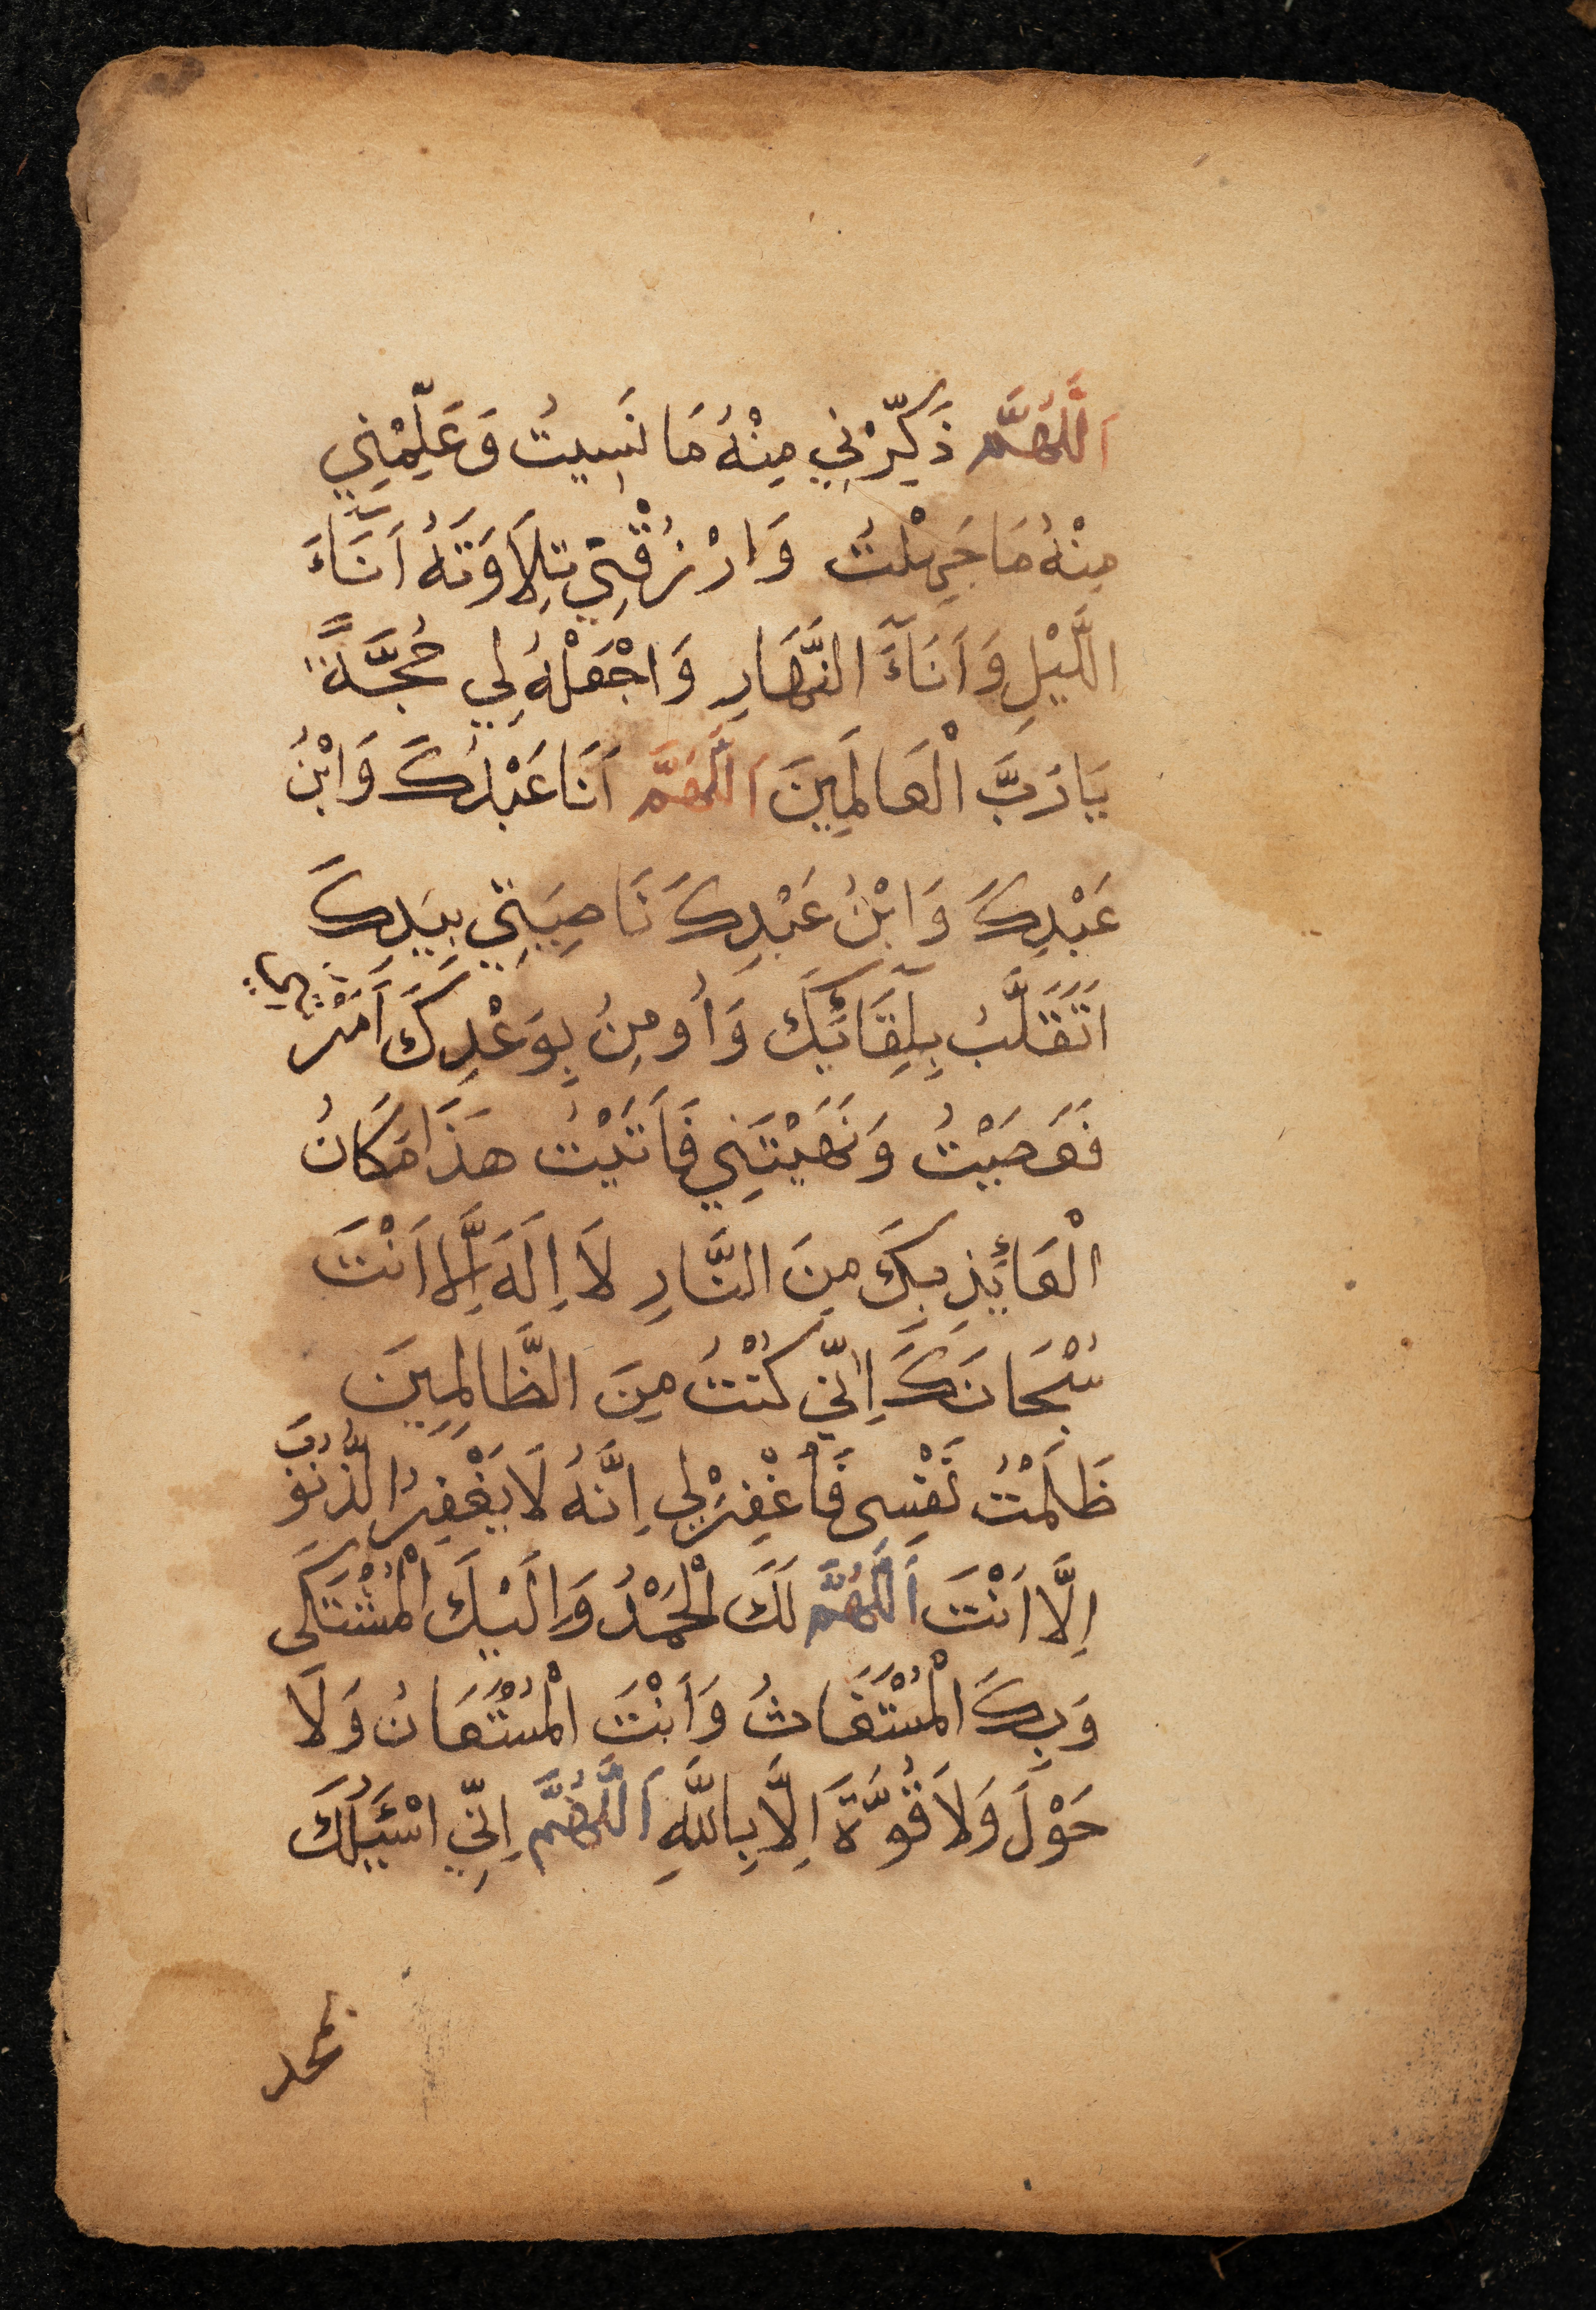 اَللَّهُمَّ ذَكِّرْنِي مِنْهُ مَا نَسِيتُ وَعَلِّمْنِي
مِنْهُ مَا جَهِلْتُ وَارْزُقْنِي تِلَاوَتَهُ اَنَّاءَ
اللَّيْلِ وَاَنَآءَ النَّهَارِ وَاجْعَلْهُ لِي حُجَّةً
يَا رَبَّ الْعَالَمِينَ اَللَّهُمَّ اَنَا عَبْدُكَ وَابْنُ
عَبْدِكَ وَابْنُ عَبْدِكَ نَاصِيَتِي بِيَدِكَ
اَتَقَلَّبُ بِلِقَآئِكَ وَاُومِنُ بِوَعْدِكَ اَمَرْتَنِي
فَعَصَيْتُ وَنَهَيْتَنِي فَاَتَيْتُ هَذَا مَكَانُ
الْعَائِذِ بِكَ مِنَ النَّارِ لَا اِلَهَ اِلَّا اَنْتَ
سُبْحَانَكَ اِنِّي كُنْتُ مِنَ الظَّالِمِينَ
ظَلَمْتُ نَفْسِى فَاغْفِرْلِي اِنَّهُ لَا يَغْفِرُ الذُّنُوبَ
اِلَّا اَنْتَ اَللَّهُمَّ لَكَ الْحَمْدُ وَالَيْكَ الْمُشْتَكَى
وَبِكَ الْمُسْتَغَاثُ وَاَنْتَ الْمُسْتَعَانُ وَلَا
حَوْلَ وَلَا قُوَّةَ اِلَّا بِاللَّهِ اَللَّهُمَّ اِنِّي اسْئَلُكَ